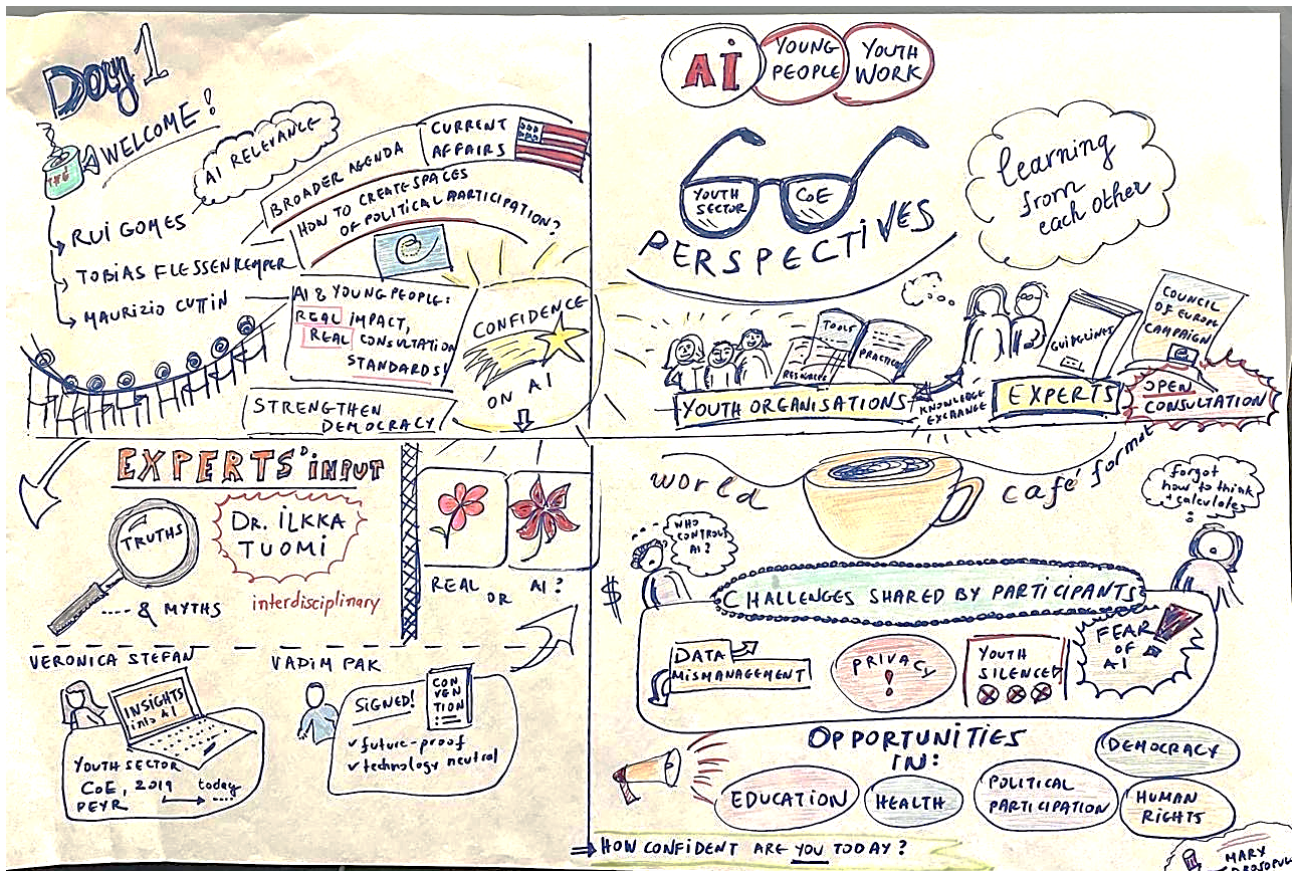 Day 1
WELCOME!
AI RELEVANCE
RUI GOMES
TOBIAS FLESSENKEMPER
MAURIZIO CUTTIN
CURRENT
AFFAIRS
BROADER AGENDA
HOW TO CREATE SPACES
OF POLITICAL PARTICIPATION?
AI & YOUNG PEOPLE:
REAL IMPACT,
REAL CONSULTATION
STANDARDS!
CONFIDENCE
ON AI
STRENGTHEN
DEMOCRACY
AI
YOUNG
PEOPLE
YOUTH
WORK
YOUTH
SECTOR
CoE
PERSPECTIVES
Learning
from
each other
TOOLS
RESOURCES
PRACTICES
YOUTH ORGANISATIONS
KNOWLEDGE
EXCHANGE
GUIDELINES
EXPERTS
COUNCIL
OF EUROPE
CAMPAIGN
OPEN
CONSULTATION
EXPERTS' iNPUT
TRUTHS
.... & MYTHS
DR. ILKKA
TUOMI
interdisciplinary
REAL OR AI?
VERONICA STEFAN
INSIGHTS
into AI
YOUTH SECTOR
CoE, 2019
PEYR
today
....
VADIM PAK
SIGNED!
CON
VEN
TION
✓ future-proof
✓ technology neutral
world café format
WHO
CONTROLS
AI?
forgot
how to think
+ calculate
$
CHALLENGES SHARED BY PARTICIPANTS
DATA
MISMANAGEMENT
PRIVACY
!
YOUTH
SILENCED
FEAR
OF
AI
OPPORTUNITIES
IN:
EDUCATION
HEALTH
POLITICAL
PARTICIPATION
DEMOCRACY
HUMAN
RIGHTS
⇒ HOW CONFIDENT ARE YOU TODAY?
MARY